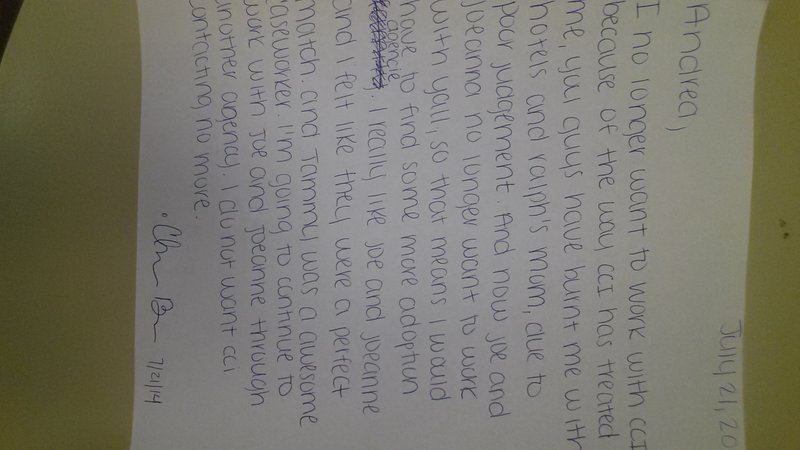 July 21, 20
Andrea,
I no longer want to work with CCI
because of the way CCI has treated
me, you guys have burnt me with
hotels and ralph's mom, due to
poor judgement. And now joe and
joeanna no longer want to work
with yall, so that means I would
have to find some more adoption
agencie. I really like joe and joeanne
and I felt like they were a perfect
match. and Tammy was a awesome
caseworker. I'm going to continue to
work with joe and joeanne through
another agency. I do not want cci
contacting no more.
7/21/14